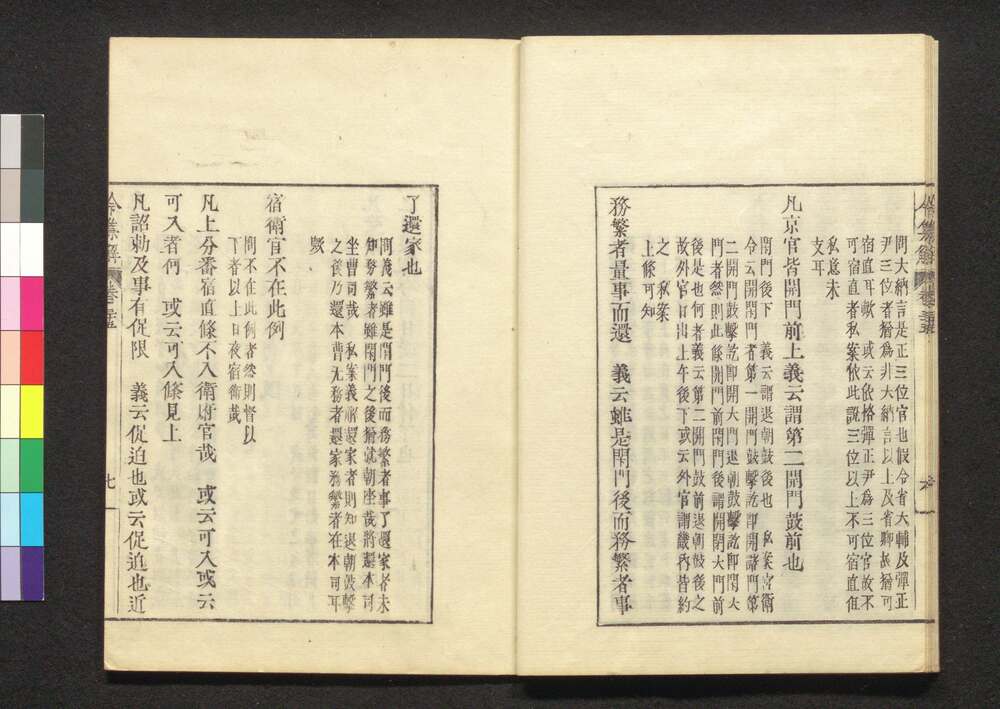 問大納言是正三位官也假令省大輔及彈正
尹三位者猶爲非大納言以上及省卿故猶可
宿直耳歟 或云依格彈正尹爲三位官故不
可宿直者私案依此說三位以上不可宿直但
私意未
支耳
凡京官皆開門前上義云謂第二開門鼓前也
閇門後下 義云謂退朝鼓後也 私案宮衛
令云開閇門者第一開門鼓擊訖即開諸門第
二開門鼓擊訖即開大門退朝鼓擊訖即閇大
門者然則此條開門前閇門後謂開閇大門前
後是也何者義云第二開門鼓前退朝鼓後之
故外官日出上午後下或云外官謂畿內皆約
之 私案
上條可知
務繁者量事而還 義云雖是閇門後而務繁者事
了還家也
問義云雖是閇門後而務繁者事了還家者未
知務繁者雖閇門之後猶就朝座哉將還本司
坐曹司哉 私案義稱還家者則知退朝鼓擊
之後乃還本曹无務者還家務繁者在本司耳
歟
宿衛官不在此例
問不在此例者然則督以
下者以上日夜宿衛哉
凡上分番宿直條不入衛府官哉 或云可入或云
可入者何 或云可入條見上
凡詔勅及事有促限 義云促迫也或云促迫也近
令集解 卷三十五
七